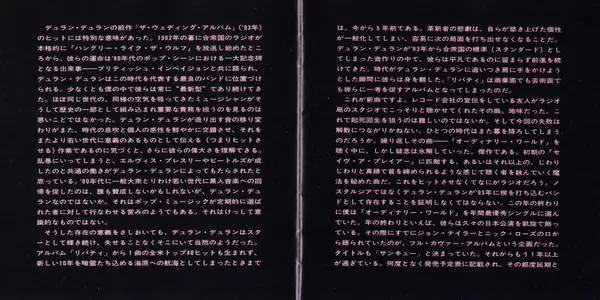 デュラン・デュランの前作「ザ・ウェディング・アルバム」('93年)
のヒットには特別な意味があった。1982年の暮に合衆国のラジオが
本格的に「ハングリー・ライク・ザ・ウルフ」を放送し始めたとこ
ろから、彼らの運命は'80年代のポップ・シーンにおける一大記念碑
となる出来事——ブリティッシュ・インベイジョンと共に図られ、
デュラン・デュランはこの時代を代表する最良のバンドに位置づけ
られる。少なくとも僕の中で彼らは常に“最新型”であり続けてき
た。ほぼ同じ世代の、同様の空気を吸ってきたミュージシャンがそ
うして歴史の一部として組み込まれ重要な責務を担うのを見るのは
悪いことではなかった。デュラン・デュランが送り出す音の移り変
わりがまた、時代の息吹と個人の感性を鮮やかに交錯させ、それを
またより若い世代に意義のあるものとして伝える(つまりヒットさ
せる)作業であるのに気づくと、さらに彼らの偉大さを理解できる。
乱暴にいってしまうと、エルヴィス・プレスリーやビートルズが成
したのと共通の働きがデュラン・デュランによってもたらされたと
思っている。'80年代に一般大衆とりわけ若い世代に黒人音楽への回
帰を促したのは、誰も賛成しないかもしれないが、デュラン・デュ
ランなのではないか。それはポップ・ミュージックが定期的に選ば
れた者に対して行なわせる営みのようでもある。それはけっして意
識的なものではない。
そうした存在の意義をさしおいても、デュラン・デュランはスタ
ーとして輝き続け、失せることなくそこにいて当然のようだった。
アルバム「リバティ」から1曲の全米トップ40ヒットも生まれず、
新しい10年を暗雲たち込める海原への航海としてしまったときまで
は。今から5年前である。革新者の悲劇は、自らが築き上げた個性
が一般化してしまい、容易に次の局面を打ち出せなくなることだ。
デュラン・デュランが'93年から合衆国の標準(スタンダード)とし
てしまった音作りの中で、彼らは平凡であるのに留まらず前進を続
けてきた。時代がデュラン・デュランに追いつき肩に手をかけよう
とした瞬間に彼らは身を翻した。「リバティ」は商業面でも芸術面で
も彼らに一考を促すアルバムとなってしまったのだ。
これが新曲ですよ。レコード会社の宣伝をしている友人がラジオ
局のスタジオでこっそりと聴かせてくれたその曲。地味だった。こ
れで起死回生を狙うのは難しいのではないか。そして今回の失敗は
解散につながりかねない。ひとつの時代はまた幕を持ろしてしまう
のだろうか。繰り返しその曲——「オーディナリー・ワールド」を
聴く中に、しかし疑念は氷解していった。傑作である。初期の「セ
イヴ・ア・プレイアー」に匹敵する、あるいはそれ以上の、じわり
じわりと真綿で首を締められるような感じで聴く者を蝕んでいく魔
法を秘めた曲だ。これをヒットさせなくてなにがラジオだろう。ノ
スタルジアではなくデュラン・デュランが'93年に楔を打ち込むバン
ドとして存在することを証明しなくてはならない。この年の終わり
に僕は「オーディナリー・ワールド」を年間最優秀シングルに選ん
でいた。年の終わりといえば、彼らは久々の日本公演を凱旋で飾っ
ている。その際にすでにジョン・テイラーとニック・ローズの口か
ら語られていたのが、フル・カヴァー・アルバムという企画だった。
タイトルも「サンキュー」と決まっていた。それからもう1年以上
が過ぎている。何度となく発売予定表に記載され、その都度延期と